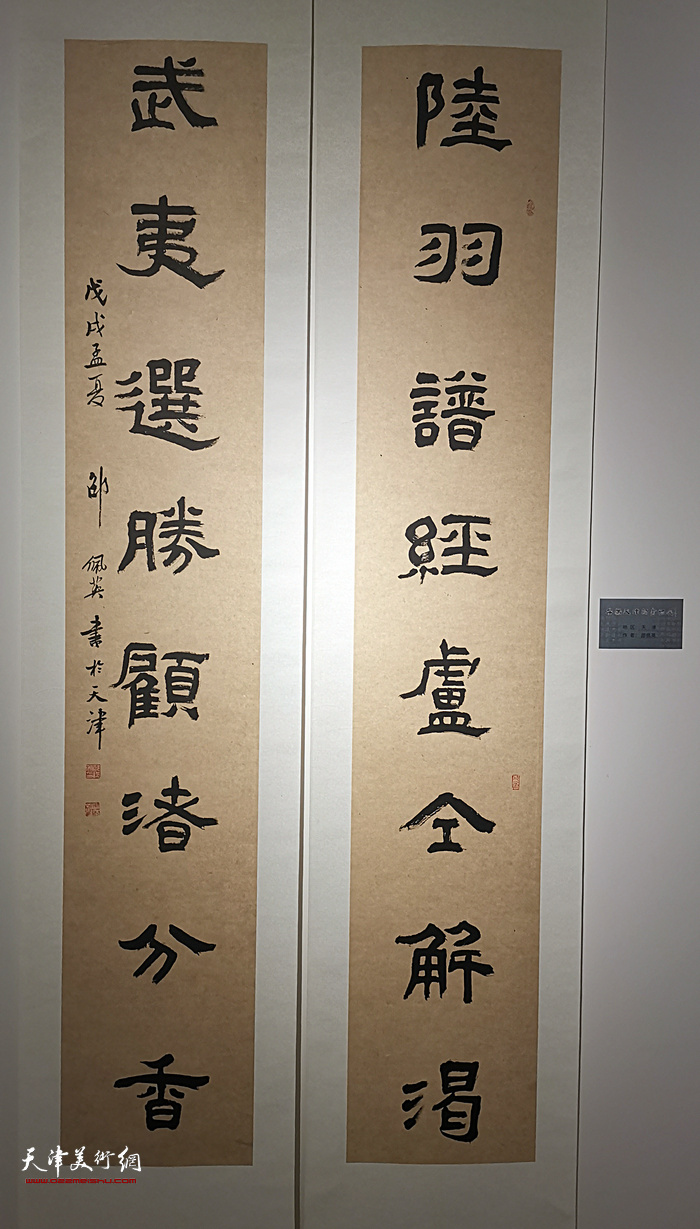 陸羽譜經盧仝解渴
武夷選勝顧渚分香
戊戌孟夏 邵佩英書於天津
天津美術網